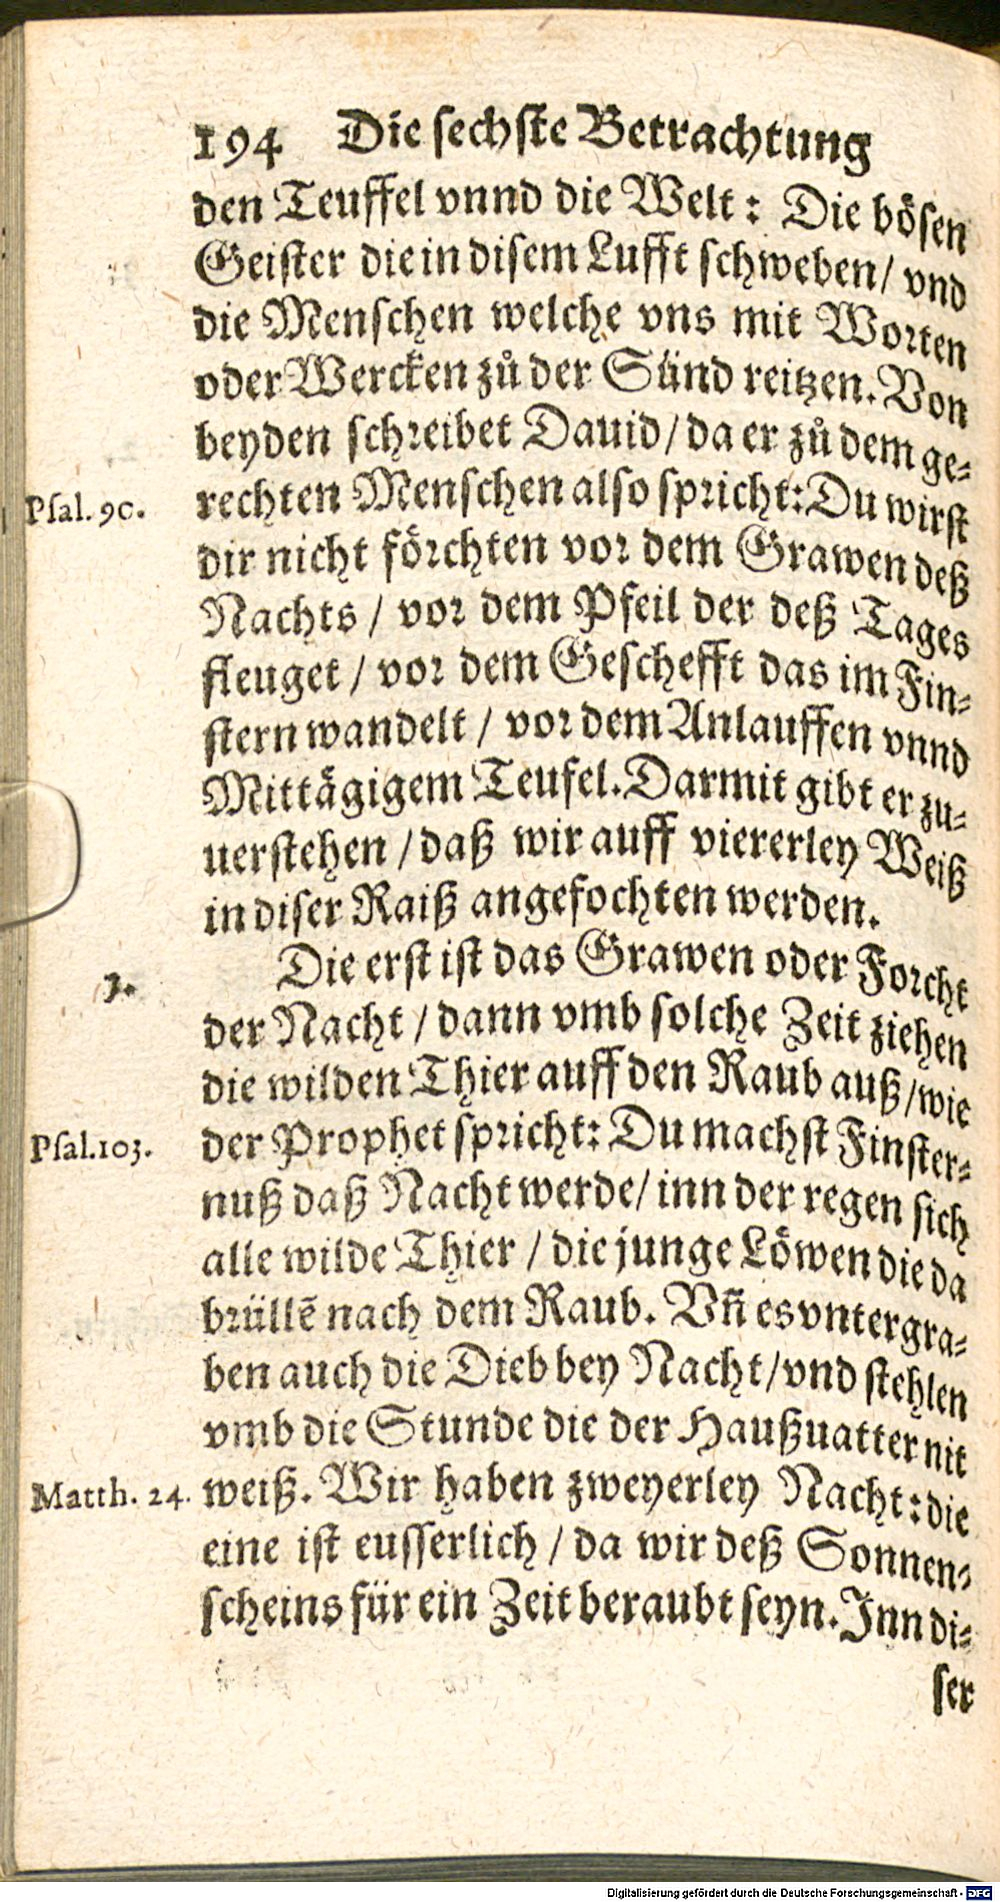 194 Die sechste Betrachtung
den Teuffel vnnd die Welt: Die bösen
Geister die in disem Lufft schweben/ vnd
die Menschen welche vns mit Worten
oder Wercken zů der Sünd reitzen. Von
beyden schreibet Dauid/ da er zů dem ge-
Psal. 90. rechten Menschen also spricht: Du wirst
dir nicht förchten vor dem Grawen deß
Nachts / vor dem Pfeil der deß Tages
fleuget / vor dem Geschefft das im Fin-
stern wandelt / vor dem Anlauffen vnnd
Mittägigem Teufel. Darmit gibt er zu-
uerstehen / daß wir auff viererley Weiß
in diser Raiß angefochten werden.
1. Die erst ist das Grawen oder Forcht
der Nacht / dann vmb solche Zeit ziehen
die wilden Thier auff den Raub auß/ wie
Psal. 103. der Prophet spricht: Du machst Finster-
nuß daß Nacht werde/ inn der regen sich
alle wilde Thier / die junge Löwen die da
brüllē nach dem Raub. Vñ es vntergra-
ben auch die Dieb bey Nacht/ vnd stehlen
vmb die Stunde die der Haußuatter nit
Matth. 24. weiß. Wir haben zweyerley Nacht: die
eine ist eusserlich / da wir deß Sonnen-
scheins für ein Zeit beraubt seyn. Inn di-
ser
Digitalisierung gefördert durch die Deutsche Forschungsgemeinschaft - DFG